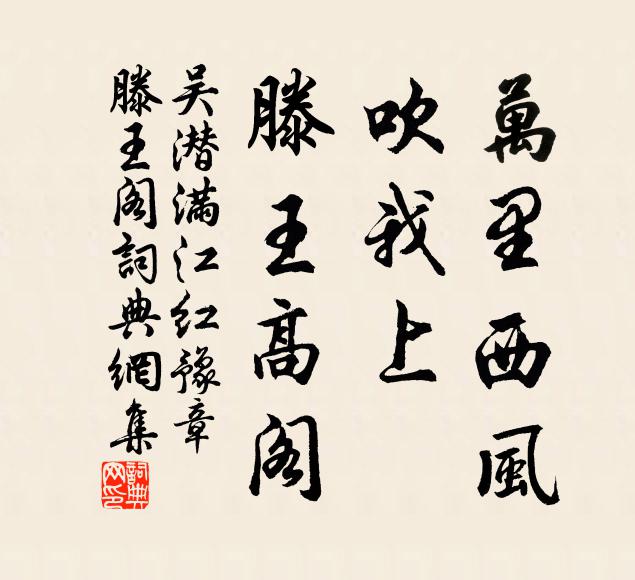 萬里西風
吹我上
滕王高阁
吴潜满江红豫章
滕王阁詞典網集
詞典
网印